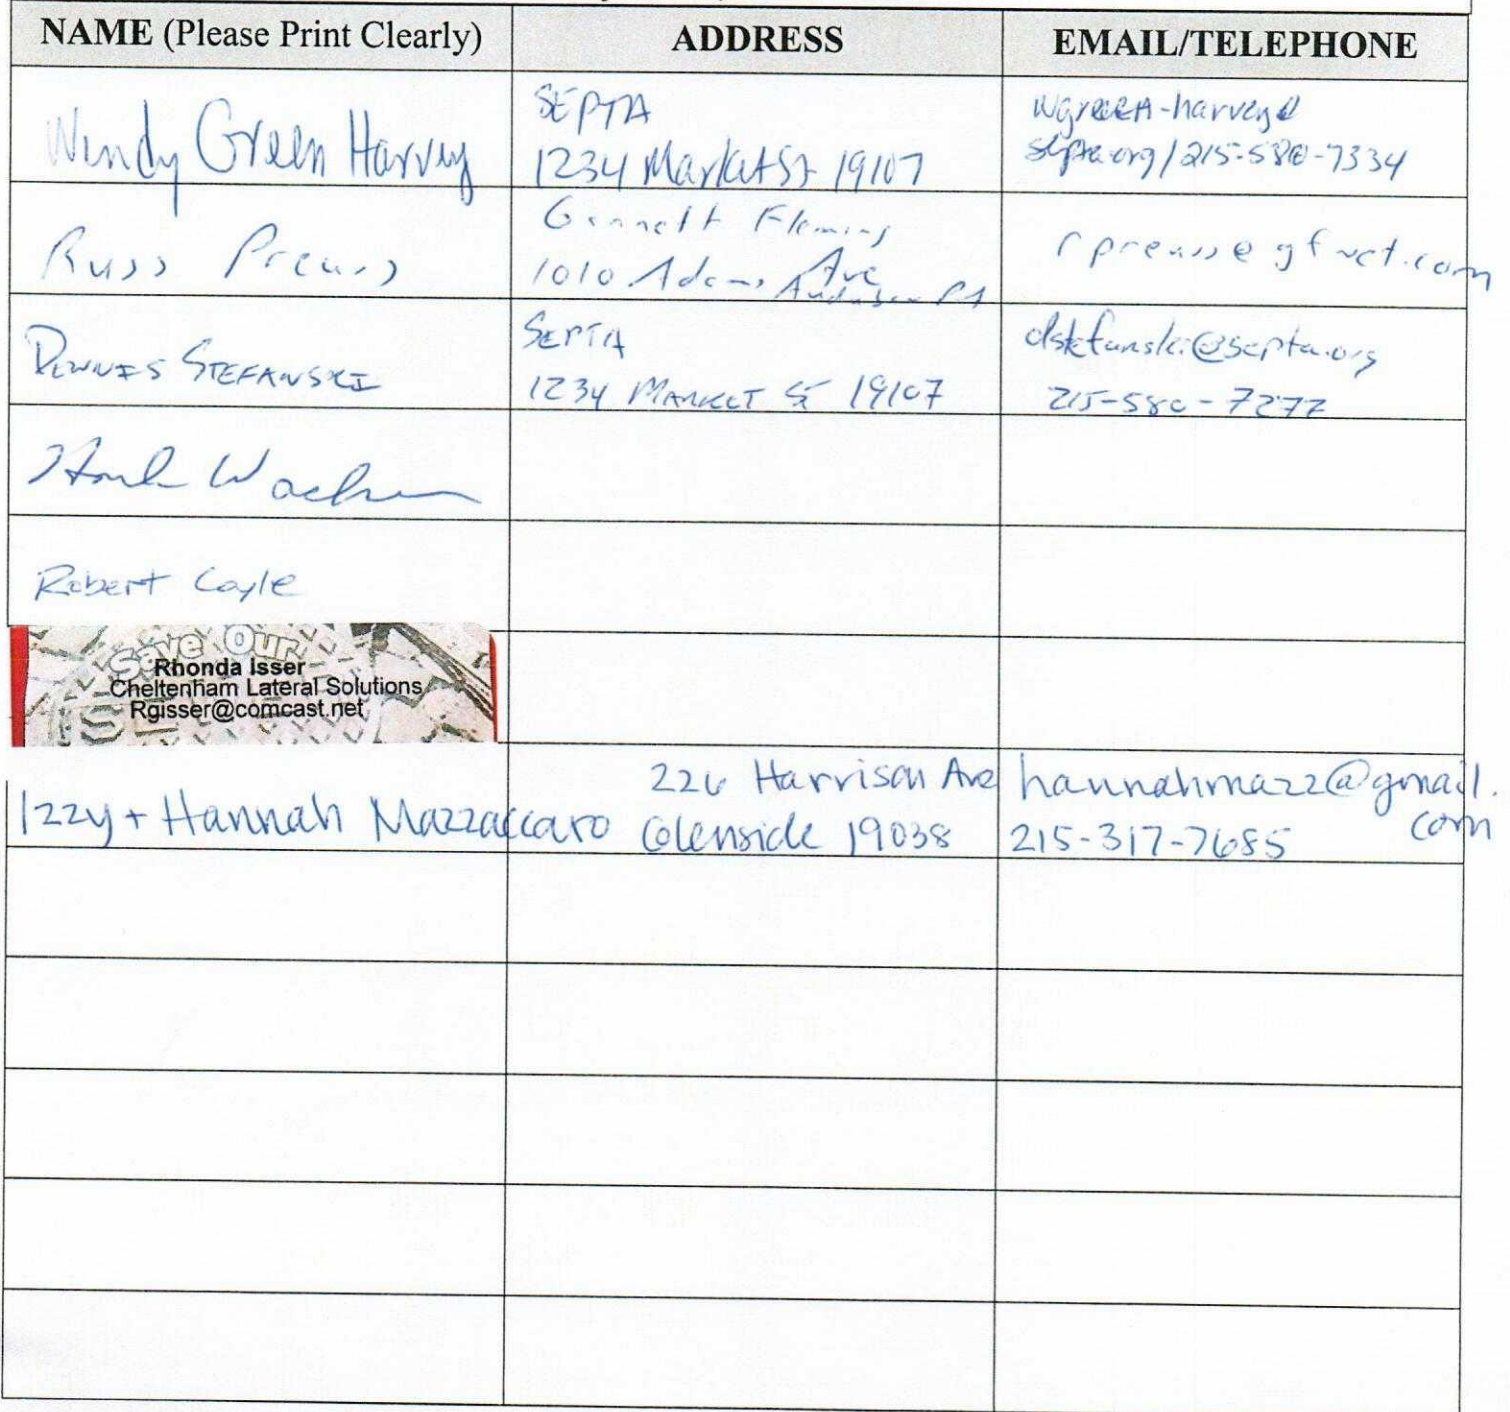 NAME (Please Print Clearly) ADDRESS EMAIL/TELEPHONE
Wendy Green Harvey
SEPTA
1234 Market St 19107
wgreen-harvey@
septa.org/215-580-7334
Russ Preuss
Gannett Fleming
1010 Adams Ave
Audubon PA
rpreuss@gfnet.com
DENNIS STEFANSKI
SEPTA
1234 MARKET St 19107
dstefanski@septa.org
215-580-7277
Robert Coyle
Save Our
Rhonda Isser
Cheltenham Lateral Solutions
Rgisser@comcast.net
Izzy + Hannah Mazzaccaro
226 Harrison Ave
Glenside 19038
hannahmazz@gmail.
com
215-317-7685